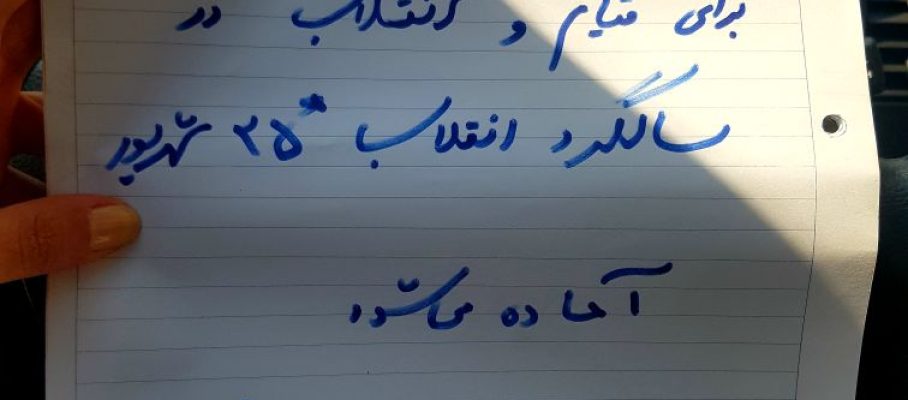 برای قیام و انقلاب در
سالگرد انقلاب ۲۵ شهریور
آماده می‌شود